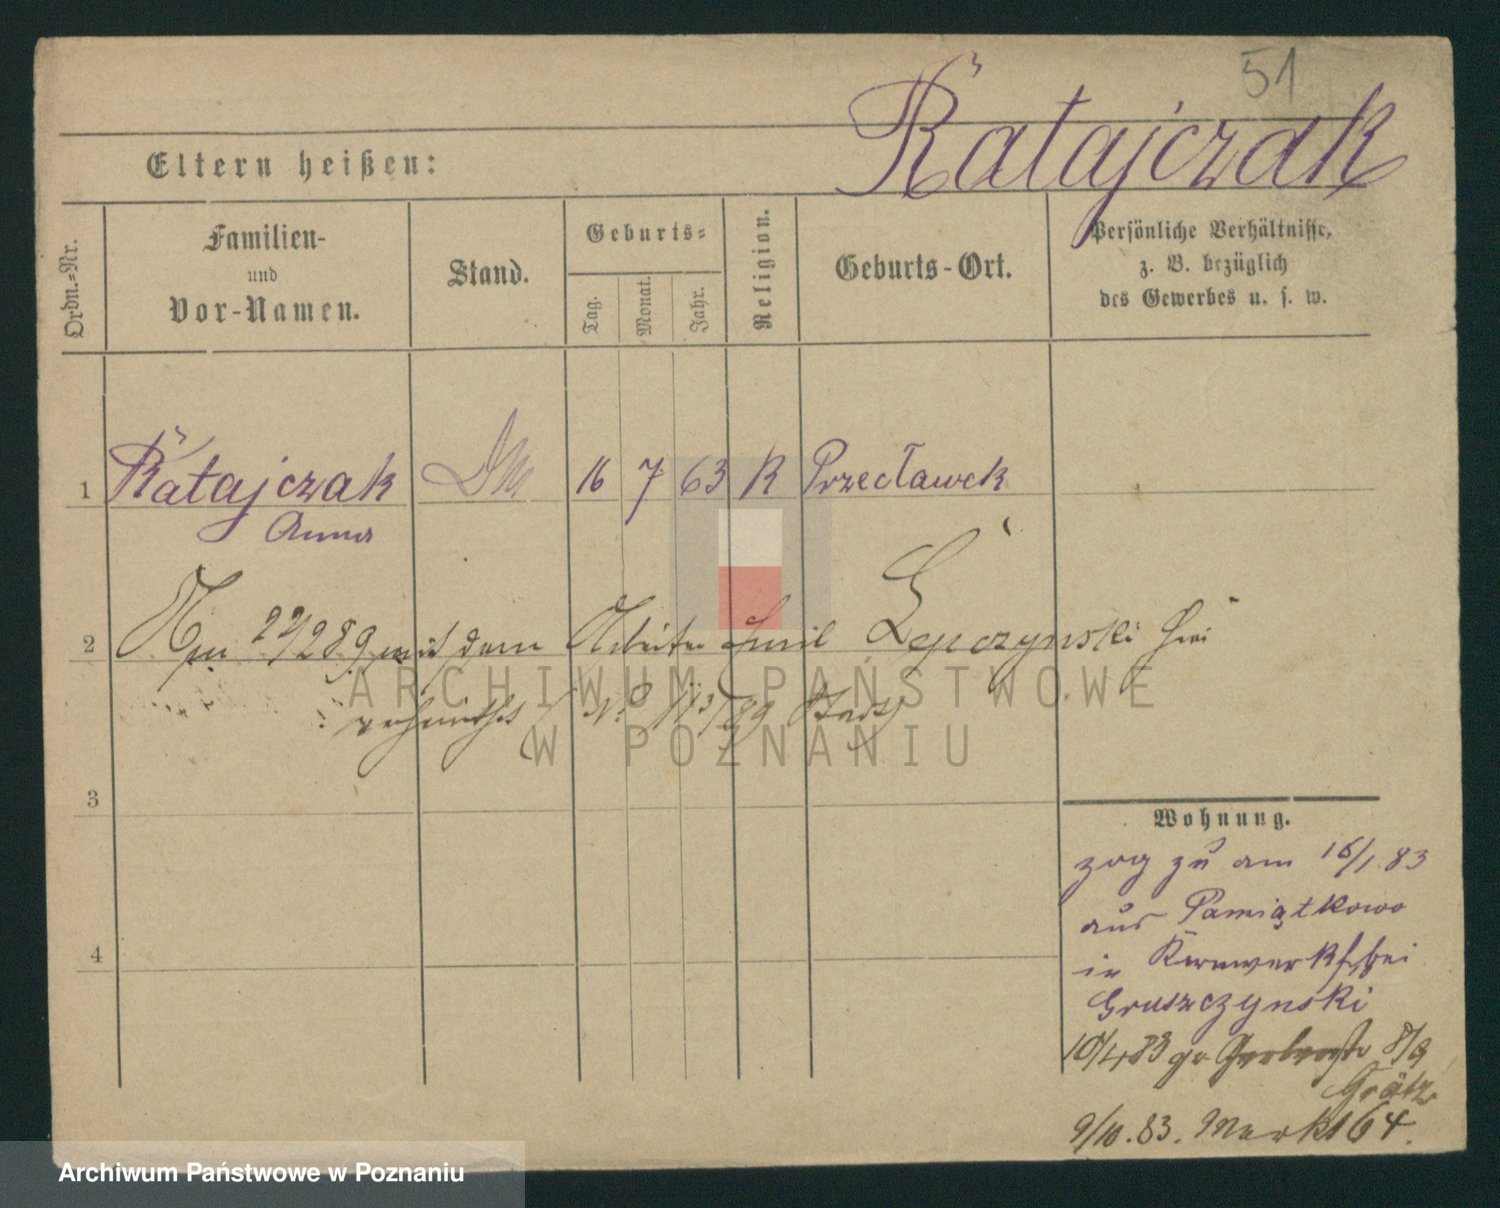 51
Ratajczak
Eltern heißen:
Ordn.-Nr.
Familien-
und
Vor-Namen.
Stand.
Geburts-
Tag.
Monat.
Jahr.
Religion.
Geburts-Ort.
Persönliche Verhältnisse,
z. B. bezüglich
des Gewerbes u. s. w.
1 Ratajczak DM 16 7 63 R Przecławek
Anna
2 22/2 89 mit dem Arbeiter Emil Lepczynski
No 113/89
ARCHIWUM PAŃSTWOWE
W POZNANIU
3
4
Wohnung.
zog zu am 16/1. 83
aus Pamiątkowo
in Kernwerk bei
Gruszczynski
10/4 83 Gerberstr 8/9
Grätz
9/10. 83. Markt 64.
Archiwum Państwowe w Poznaniu